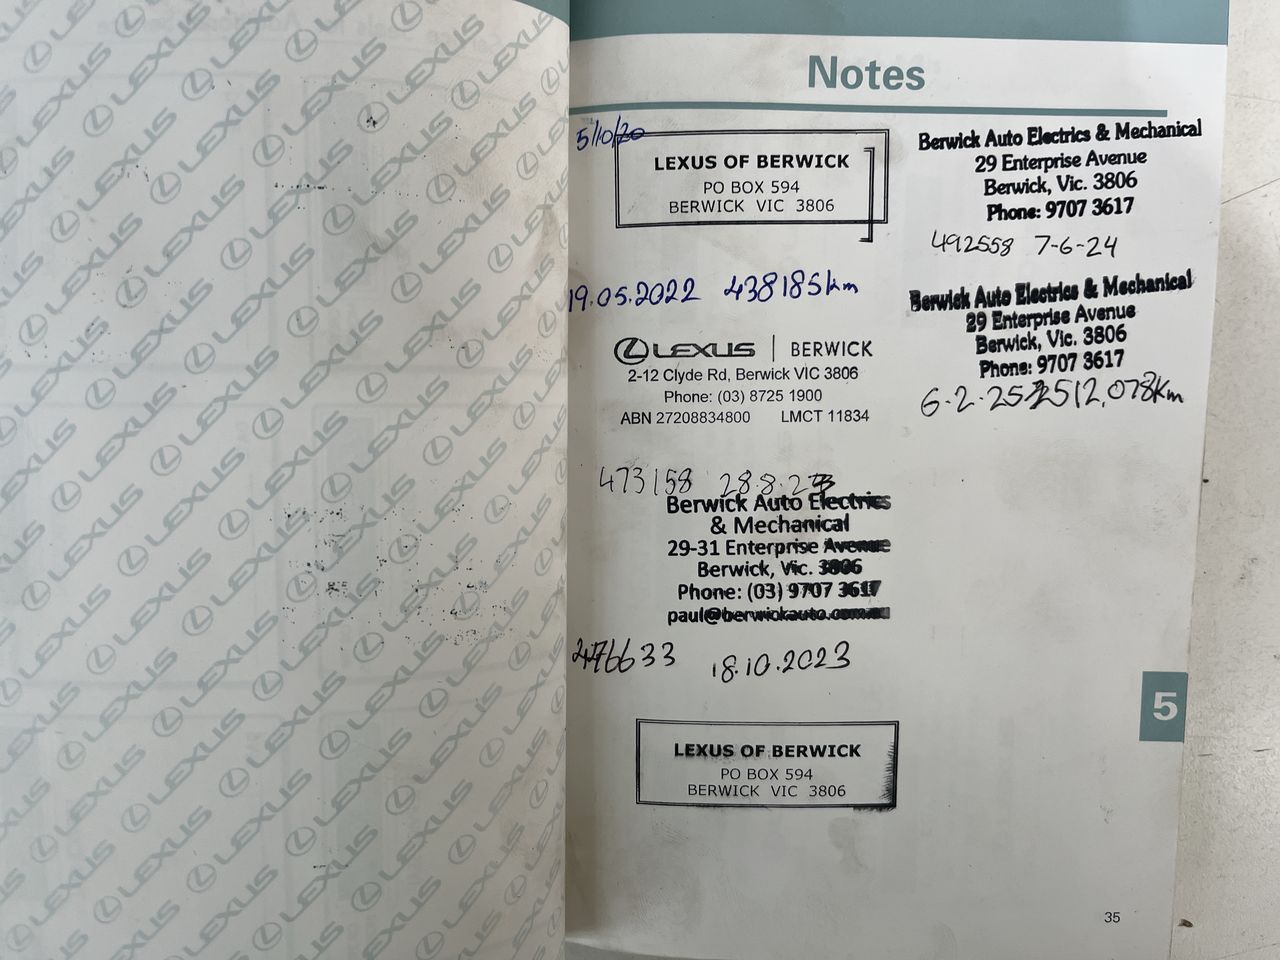 Notes
5/10/20
LEXUS OF BERWICK
PO BOX 594
BERWICK VIC 3806
19.05.2022 438185km
LEXUS | BERWICK
2-12 Clyde Rd, Berwick VIC 3806
Phone: (03) 8725 1900
ABN 27208834800 LMCT 11834
473158 28.8.23
Berwick Auto Electrics
& Mechanical
29-31 Enterprise Avenue
Berwick, Vic. 3806
Phone: (03) 9707 3617
paul@berwickauto.com.au
476633 18.10.2023
LEXUS OF BERWICK
PO BOX 594
BERWICK VIC 3806
Berwick Auto Electrics & Mechanical
29 Enterprise Avenue
Berwick, Vic. 3806
Phone: 9707 3617
492558 7-6-24
Berwick Auto Electrics & Mechanical
29 Enterprise Avenue
Berwick, Vic. 3806
Phone: 9707 3617
6-2-25 512,078Km
5
35
LEXUS